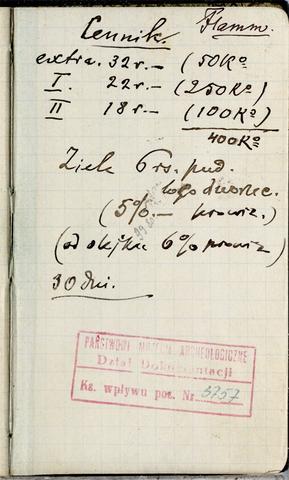 Cennik. Flamm.
extra. 32 r.— (50 Ko
I. 22 r.— (250 Ko)
II 18 r.— (100 Ko)
400 Ko
Ziele 6 rs. pud.
loco dworzec.
(5%.— prowiz.)
(od 6% prowiz
30 dni.
PAŃSTWOWE MUZEUM ARCHEOLOGICZNE
Dział Dokumentacji
Ks. wpływu poz. Nr. 5757